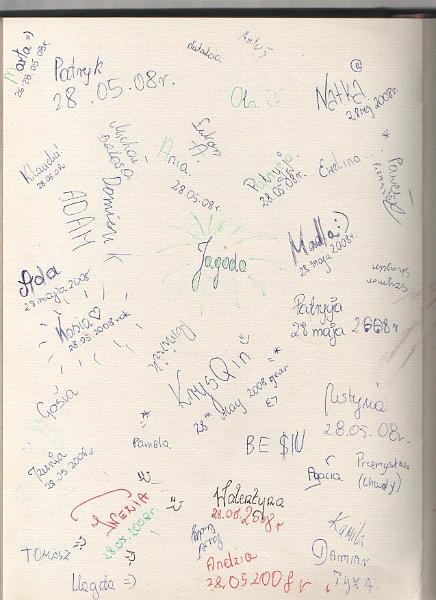 Marta =)
26-28.05.08r.
Patryk
28.05.08r.
Natalcia
Antuś
Ola
@
Natka
28 maj 2008r.
Klaudia
28.05.08r.
Michał
Dominik
ADAM
Łukasz
A.
Ania
28.05.08r.
Patrycja
28.05.08r.
Ewelina...
Paweł
Jagoda
Madla :)
28 maja 2008r.
Szczepan
Ada
28 maja 2008
Kasia ♡
28.05.2008 rok
Patrycja
28 maja 2008r
KrysQin
28th May 2008 year
Gosia
Justyna
28.05.08r.
28.05.2008r.
Pamela
BE $IU
Agacia
Przemysław
IRENIA
28.05.2008r.
Walentyna
28.05.2008r
Kamila
TOMASZ =)
Andzia
28.05.2008r
Damian
Magda =)